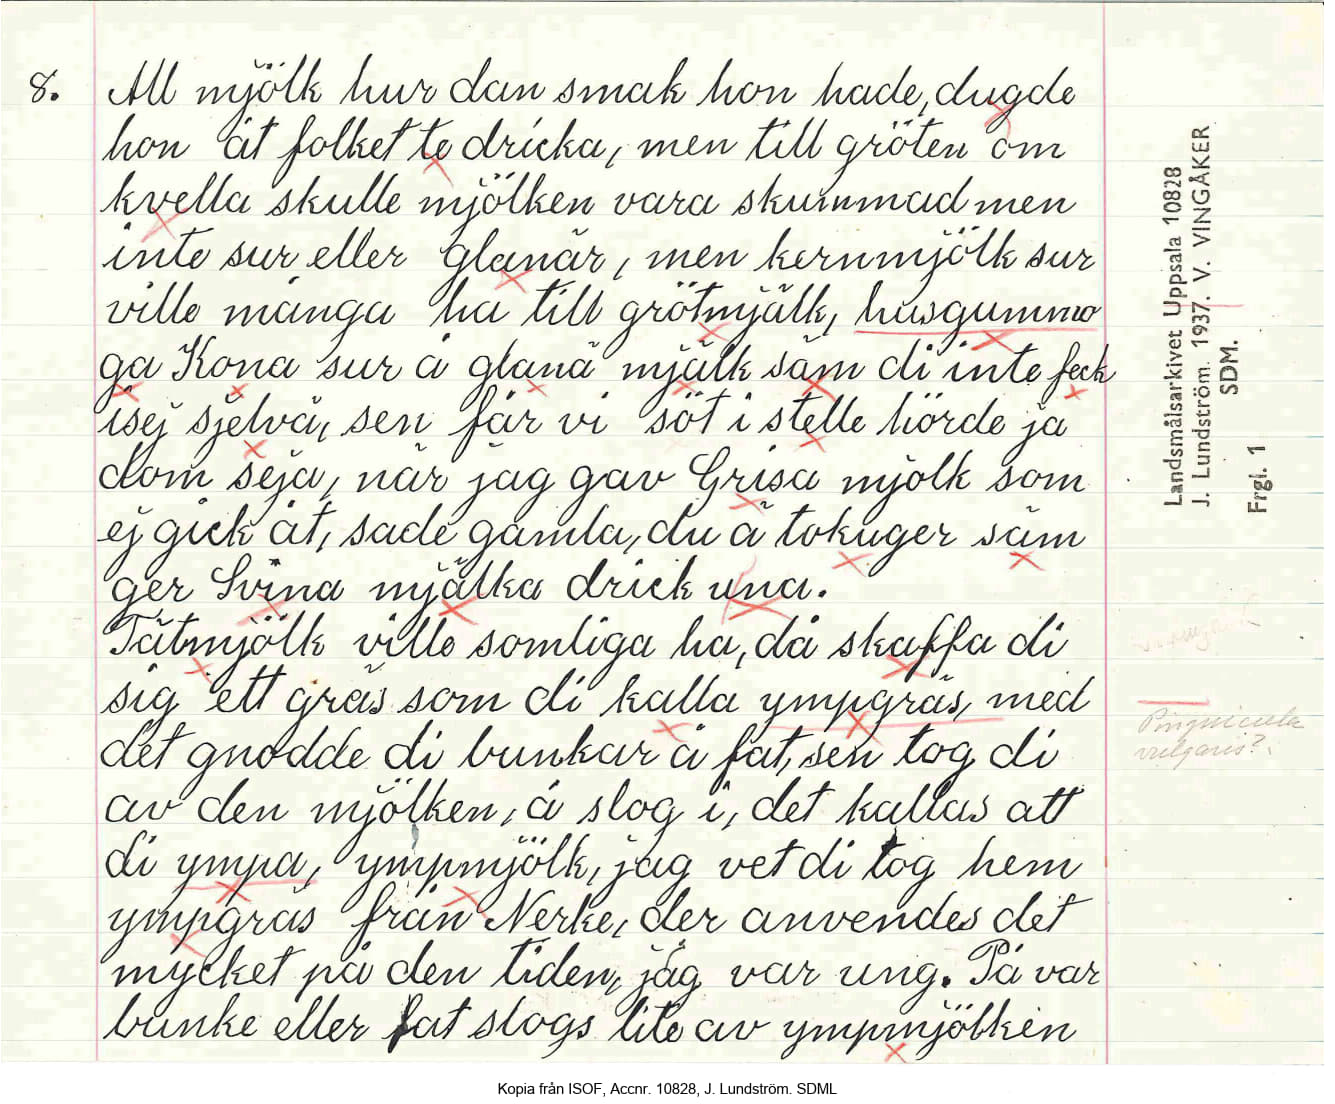 8. All mjölk hur dan smak hon hade, dugde
hon åt folket te dricka, men till gröten om
kvella skulle mjölken vara skummad men
inte sur eller glanär, men kernmjölk sur
ville många ha till grötmjälk, husgummo
ga Kona sur å glanä mjälk säm di inte feck
isej sjelvä, sen får vi söt i stelle hörde ja
dom seja, när jag gav Grisa mjölk som
ej gick åt, sade gamla, du ä tokuger säm
ger Svina mjälka drick una.
Tätmjölk ville somliga ha, då skaffa di
sig ett gräs som di kalla ympgräs, med
det gnodde di bunkar å fat, sen tog di
av den mjölken, å slog i, det kallas att
di ympa, ympmjölk, jag vet di tog hem
ympgräs från Nerke, der anvendes det
mycket på den tiden, jag var ung. På var
bunke eller fat slogs lite av ympmjölken
Landsmålsarkivet Uppsala 10828
J. Lundström. 1937. V. VINGÅKER
SDM.
Frgl. 1
Pinguicula
vulgaris?.
Kopia från ISOF, Accnr. 10828, J. Lundström. SDML